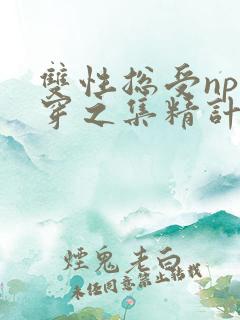 雙性總受np快
穿之集精計
煙鬼老白
未经同意禁止转载